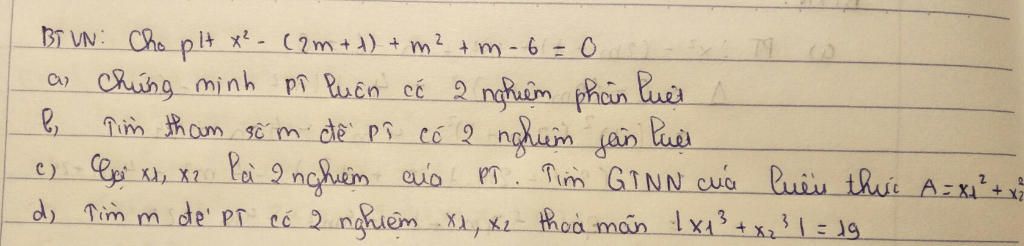 BTVN: Cho pt x² - (2m+1) + m² + m - 6 = 0
a, Chứng minh PT luôn có 2 nghiệm phân biệt
b, Tìm tham số m để PT có 2 nghiệm phân biệt
c) Gọi x1, x2 là 2 nghiệm của PT. Tìm GTNN của biểu thức A = x1² + x2²
d, Tìm m để PT có 2 nghiệm x1, x2 thoả mãn |x1³ + x2³| = 19